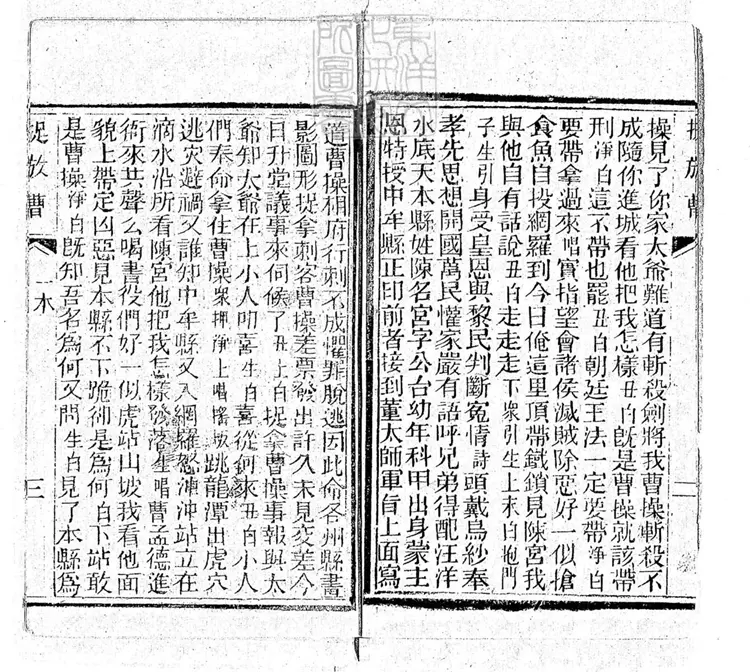 操見了你家太爺難道有斬殺劍將我曹操斬殺不
成隨你進城看他把我怎樣丑白旣是曹操就該帶
刑淨白這不帶也罷丑白朝廷王法一定要帶淨白
要帶拿過來唱實指望會諸侯滅賊除惡好一似搶
食魚自投網羅到今日俺這里頂帶鐵鎖見陳宮我
與他自有話說丑白走走走下衆引生上末白抱門
子生引身受皇恩與黎民判斷冤情詩頭戴烏紗奉
孝先思想開國萬民懽家嚴有語呼兄弟得配汪洋
水底天本縣姓陳名宮字公台幼年科甲出身蒙主
恩特授中牟縣正印前者接到董太師軍旨上面寫
道曹操相府行刺不成懼罪脫逃因此命各州縣畫
影圖形捉拿刺客曹操差票發出許久未見交差今
日升堂議事來伺候了丑上白捉拿曹操事報與太
爺知太爺在上小人叩喜生白喜從何來丑白小人
們奉命拿住曹操衆押淨上唱搖板跳龍潭出虎穴
逃灾避禍又誰知中牟縣又入網羅怒冲冲站立在
滴水沿所看陳宮他把我怎樣發落生唱曹孟德進
衙來共聲么喝書役們好一似虎站山坡我看他面
貌上帶定凶惡見本縣不下跪卻是爲何白下站敢
是曹操淨白旣知吾名爲何又問生白見了本縣爲
捉放曹
三